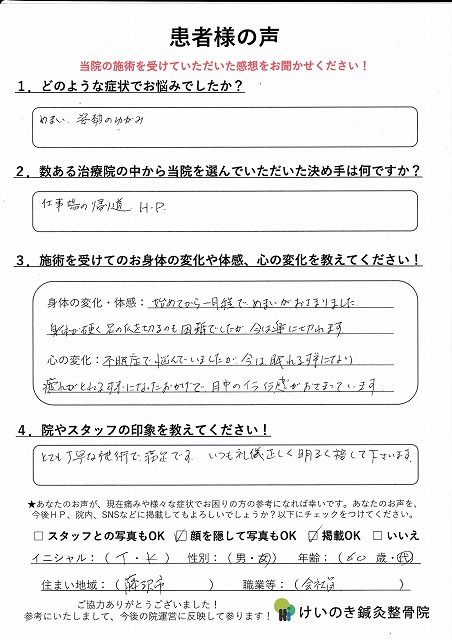 患者様の声
当院の施術を受けていただいた感想をお聞かせください！
1．どのような症状でお悩みでしたか？
めまい、姿勢のゆがみ
2．数ある治療院の中から当院を選んでいただいた決め手は何ですか？
仕事場の帰り道 H.P.
3．施術を受けてのお身体の変化や体感、心の変化を教えてください！
身体の変化・体感：始めてから一月程で、めまいがおさまりました。
身体が硬く足の爪を切るのも困難でしたが、今は楽に切れます
心の変化：不眠症で悩んでいましたが今は眠れる様になり
疲れがとれる様になったおかげで、日中のイライラ感がおさまっています。
4．院やスタッフの印象を教えてください！
とても丁寧な施術で満足です。いつも礼儀正しく明るく接して下さいます。
★あなたのお声が、現在痛みや様々な症状でお困りの方の参考になれば幸いです。あなたのお声を、
今後ＨＰ、院内、SNSなどに掲載してもよろしいでしょうか？以下にチェックをつけてください。
□ スタッフとの写真もOK ☑ 顔を隠して写真もOK ☑ 掲載OK □ いいえ
イニシャル：（ T・K ） 性別：（男・女） 年齢：（ 60 歳・代）
お住まい地域：（ 藤沢市 ） 職業等：（ 会社員 ）
ご協力ありがとうございました！
参考にいたしまして、今後の院運営に反映して参ります！
けいのき鍼灸整骨院